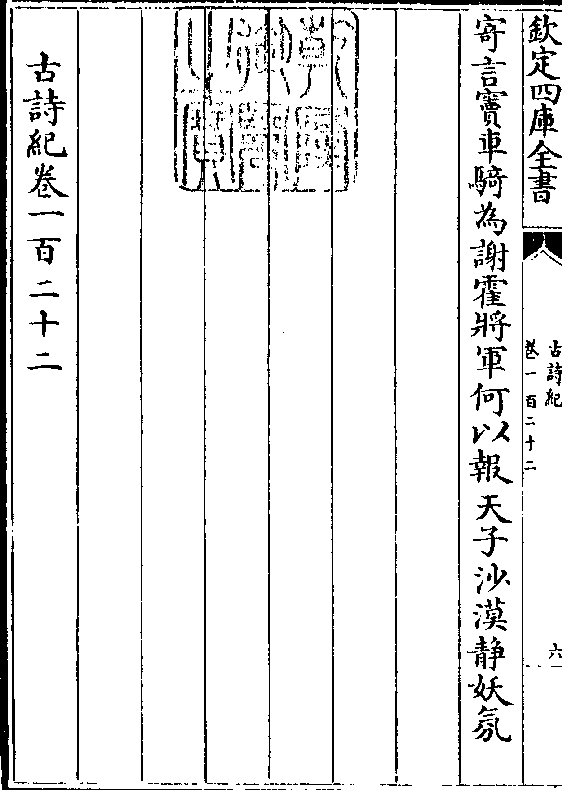 欽定四庫全書
古詩紀
卷一百二十二
六
寄言竇車騎為謝霍將軍何以報天子沙漠靜妖氛
古詩紀卷一百二十二